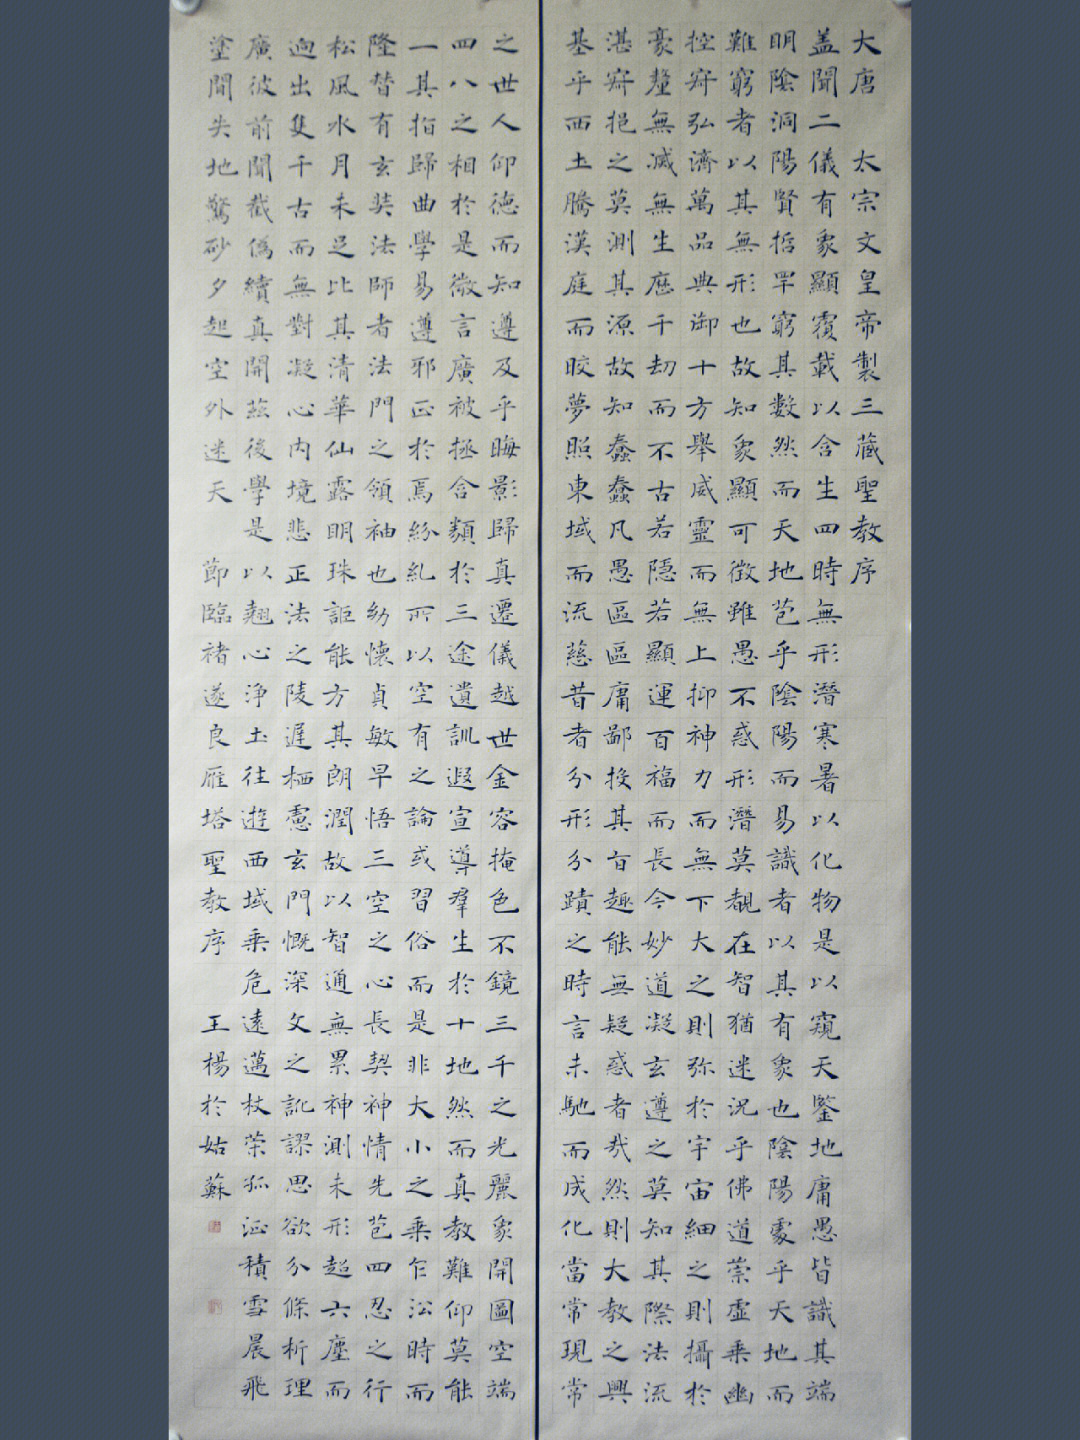 大唐 太宗文皇帝製三藏聖教序
盖聞二儀有象顯覆載以含生四時無形潛寒暑以化物是以窺天鑒地庸愚皆識其端
明陰洞陽賢哲罕窮其數然而天地苞乎陰陽而易識者以其有象也陰陽處乎天地而
難窮者以其無形也故知象顯可徵雖愚不惑形潛莫覩在智猶迷況乎佛道崇虛乘幽
控寂弘濟萬品典御十方舉威靈而無上抑神力而無下大之則弥於宇宙細之則攝於
豪釐無滅無生歷千劫而不古若隱若顯運百福而長今妙道凝玄遵之莫知其際法流
湛寂挹之莫測其源故知蠢蠢凡愚區區庸鄙投其旨趣能無疑惑者哉然則大教之興
基乎西土騰漢庭而皎夢照東域而流慈昔者分形分蹟之時言未馳而成化當常現常
之世人仰德而知遵及乎晦影歸真遷儀越世金容掩色不鏡三千之光麗象開圖空端
四八之相於是微言廣被拯含類於三途遺訓遐宣導群生於十地然而真教難仰莫能
一其指歸曲學易遵邪正於焉紛糺所以空有之論或習俗而是非大小之乘乍沿時而
隆替有玄奘法師者法門之領袖也幼懷貞敏早悟三空之心長契神情先苞四忍之行
松風水月未足比其清華仙露明珠詎能方其朗潤故以智通無累神測未形超六塵而
逈出隻千古而無對凝心內境悲正法之陵遲栖慮玄門慨深文之訛謬思欲分條析理
廣彼前聞截偽續真開茲後學是以翹心淨土往遊西域乘危遠邁杖策孤征積雪晨飛
塗間失地驚砂夕起空外迷天 節臨褚遂良雁塔聖教序 王楊於姑蘇